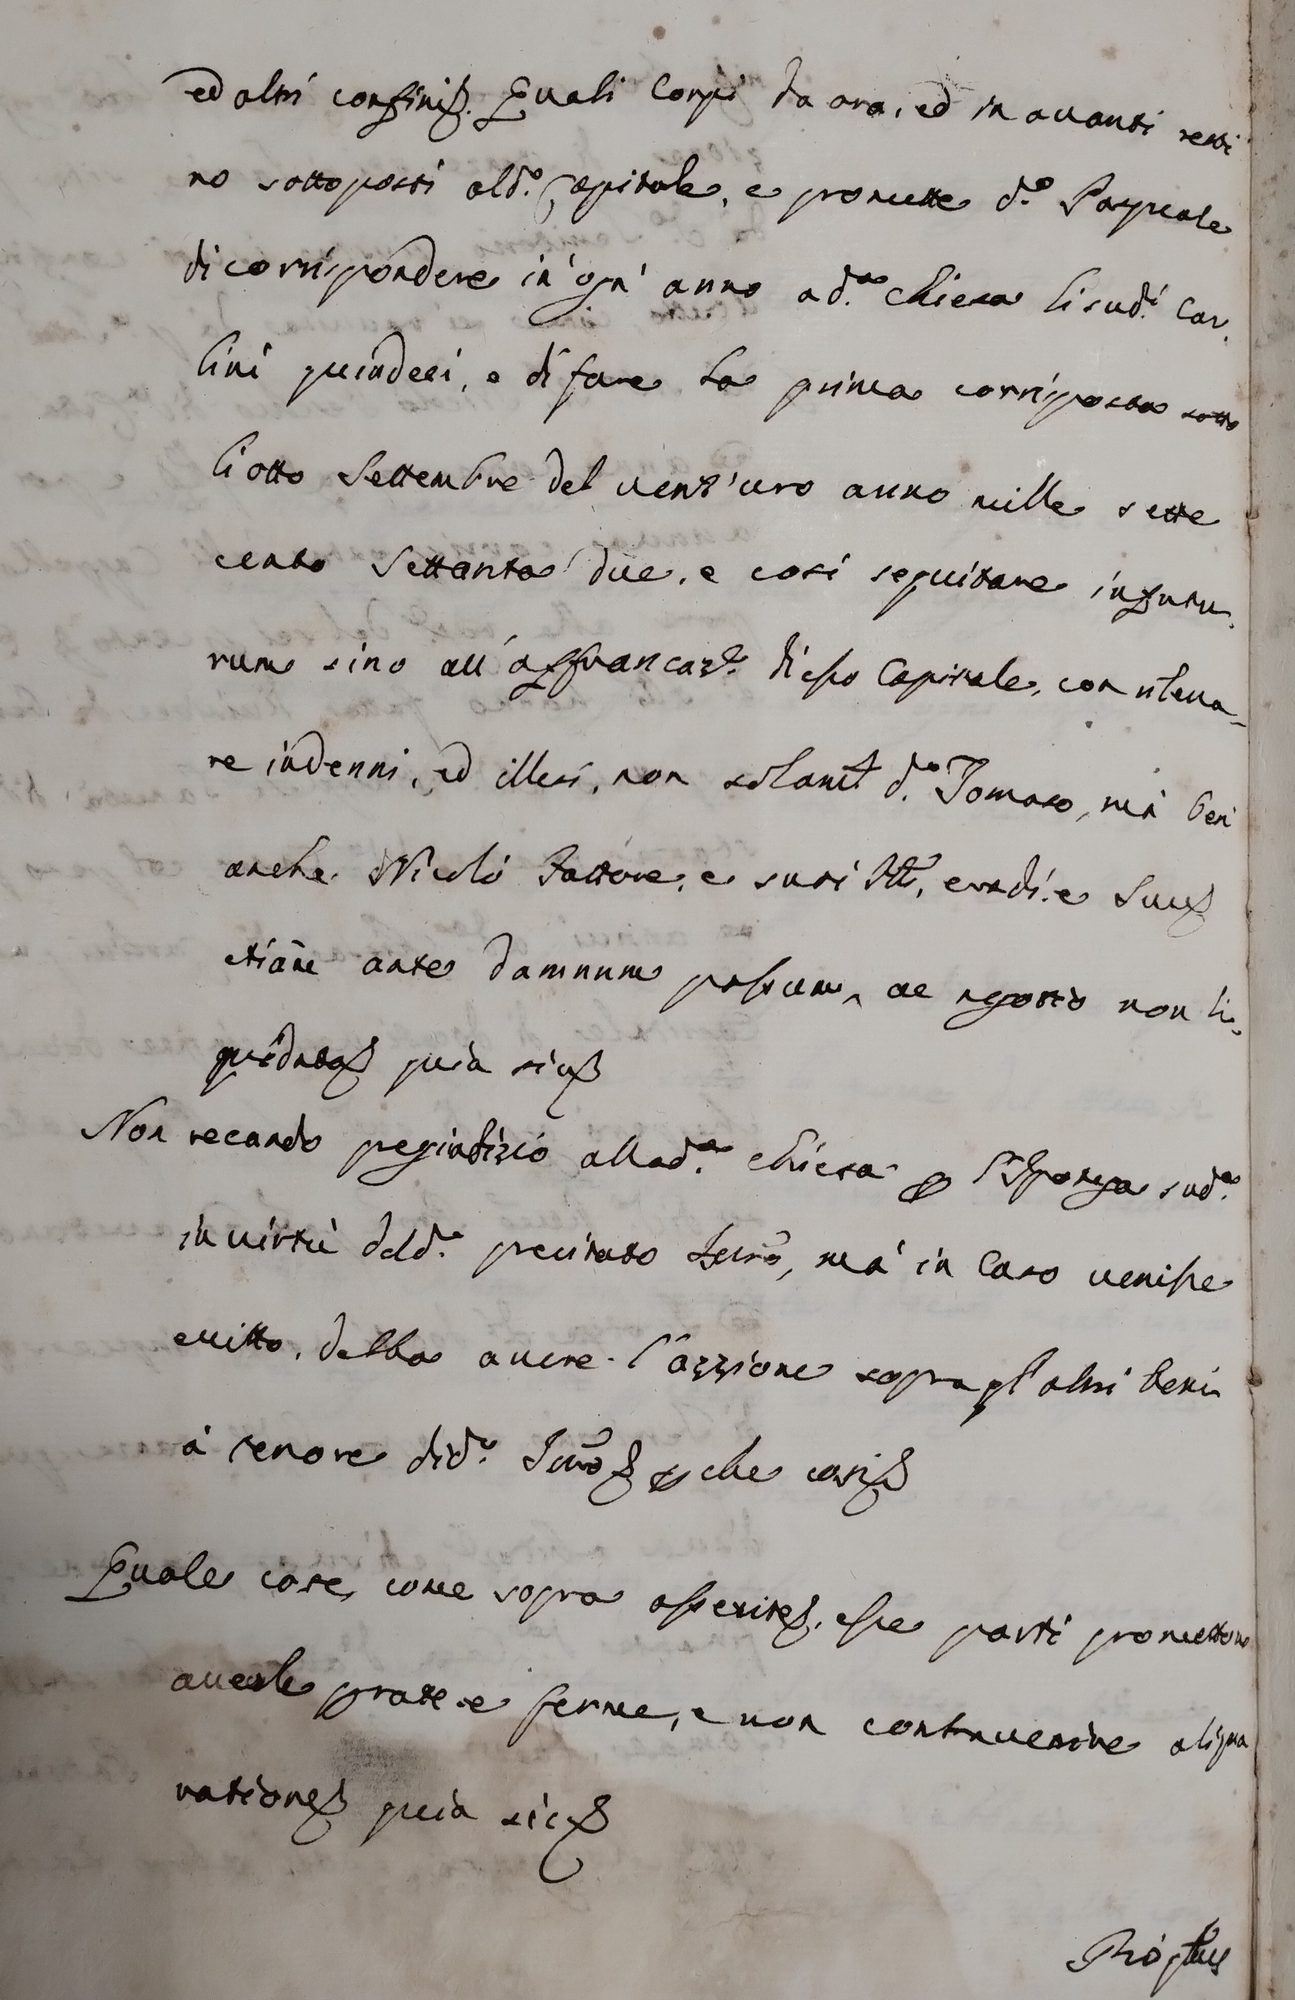 ed altri confini. Quali Corpi da ora, ed in avanti resti
no sottoposti al d.º Capitale, e promette d.º Pasquale
di corrispondere in ogn' anno a d.ª Chiesa li sud.i Car.
lini quindeci, e di fare la prima corrisposta sotto
li otto Settembre del vent'uro anno mille sette
cento Settanta due, e così seguitare in futu.
rum sino all'affrancaz.e di esso Capitale, con rileva-
re indenni, ed illesi, non solam.t d.º Tomaso, mà ben
anche Nicolò Fattore, e suoi eredi, e
etiam ante damnum passum, ac non li-
quidato quia sic
Non recando pregiudizio alla d.ª Chiesa sud.ª
in virtù del d.º precitato mà in Caso venisse
evitto, debba avere l'azzione sopra gl'altri beni
à tenore di d.º che così
Quale cose, come sopra asserite, esse parti promettono
averle grate e ferme, e non contravenire aliqua
ratione quia sic